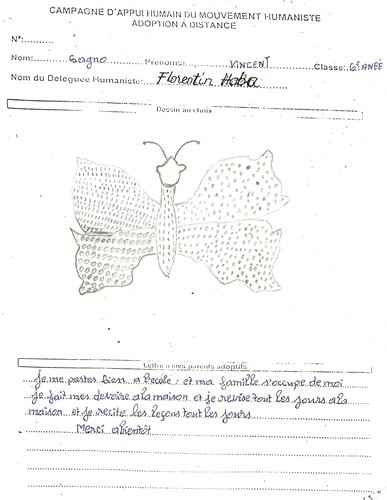 CAMPAGNE D'APPUI HUMAIN DU MOUVEMENT HUMANISTE
ADOPTION À DISTANCE
N°:
Nom: Sagno Prenoms: VINCENT Classe: 6e ANÉE
Nom du Deleguee Humaniste: Florentin Haba
Dessin au choix
Lettre a mes parents adoptifs
je me portes bien a l'ecole, et ma famille s'occupe de moi
je fait mes devoire a la maison et je revise tout les jours a la
maison et je recite les leçons tout les jours
Merci abientôt